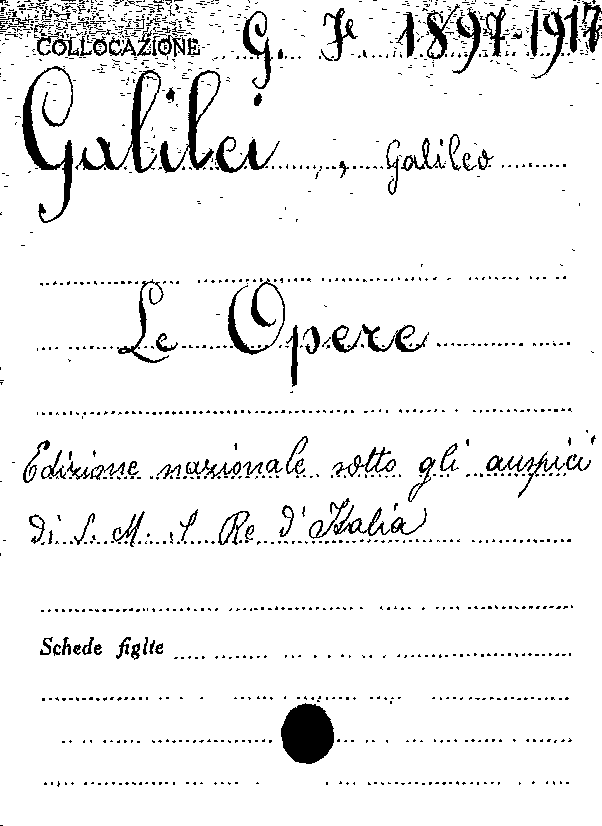 COLLOCAZIONE G. Je. 1897-1917
Galilei, Galileo
Le Opere
Edizione nazionale sotto gli auspici
di S. M. I Re d'Italia
Schede figlie